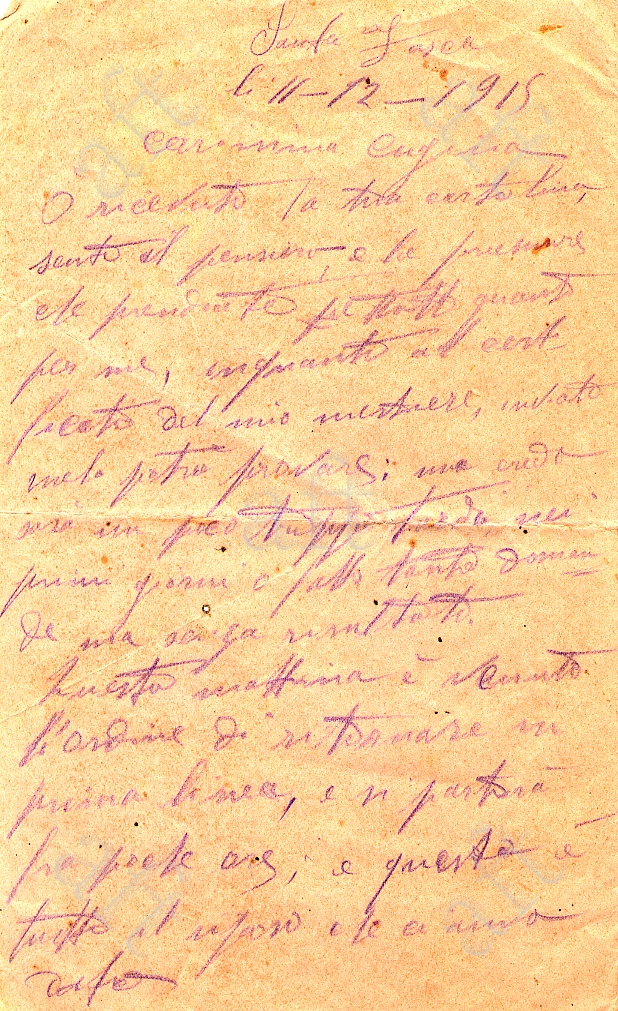 li 11-12-1915
Carissima Eugenia
O ricevuto la tua cartolina,
sento il pensiero, e le premure
che prendiate quant
per me, inquanto al certi
ficato del mio mestiere, inviato
melo potra provare; ma credo
sarà un poco troppo tardi, nei
primi giorni o fatto tante doman
de ma senza risultato.
Questa mattina è venuto
l'ordine di ritornare in
prima linea, e si partirà
fra poche ore; e questo è
tutto il riposo che ci anno
dato